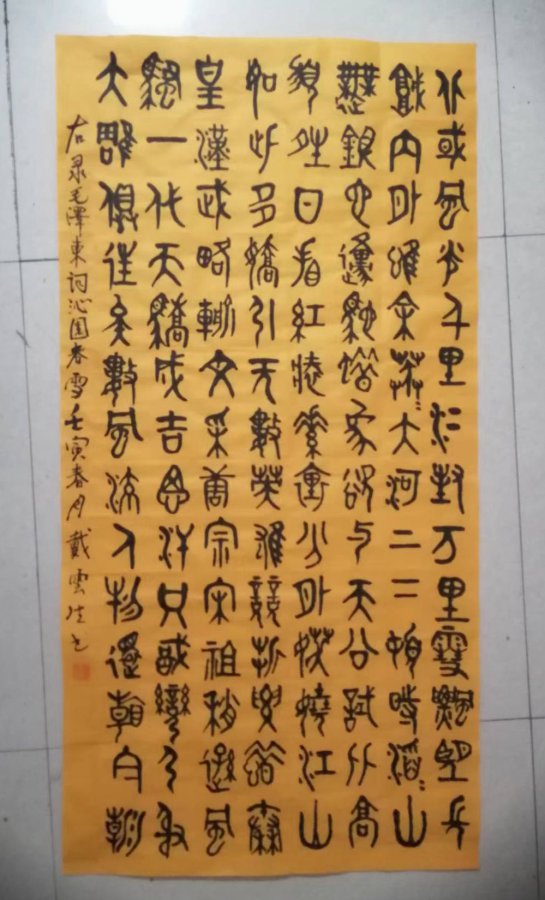 北或風光千里冰封万里雪飄望長
城內外惟余莽〻大河上下頓時滔〻山
舞銀蛇原馳蜡象欲与天公試比高
須晴日看紅裝素裹分外妖嬈江山
如此多嬌引无數英雄競折腰惜秦
皇漢武略輸文采唐宗宋祖稍遜風
騷一代天驕成吉思汗只識彎弓射
大雕俱往矣數風流人物還看今朝
右录毛澤東词沁园春雪壬寅春月戴雲生书